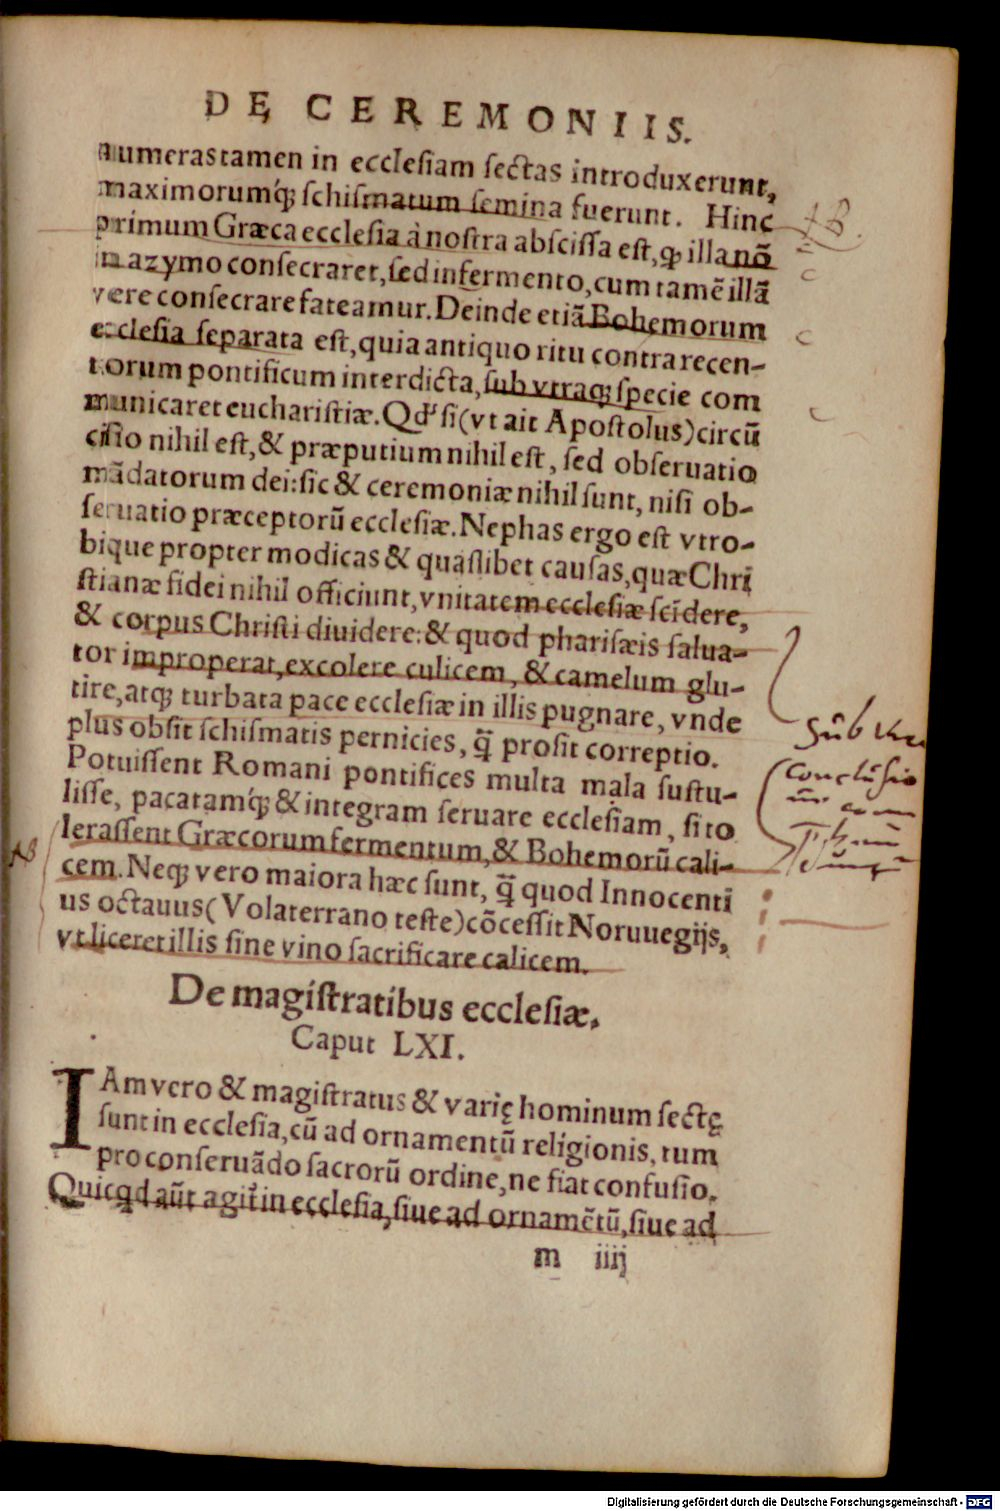 DE CEREMONIIS.
numeras tamen in ecclesiam sectas introduxerunt,
maximorumq́; schismatum semina fuerunt. Hinc
primum Græca ecclesia à nostra abscissa est, ꝙ illa nõ
in azymo consecraret, sed in fermento, cum tamẽ illã
vere consecrare fateamur. Deinde etiã Bohemorum
ecclesia separata est, quia antiquo ritu contra recen-
torum pontificum interdicta, sub vtraq; specie com
municaret eucharistiæ. Qđ si (vt ait Apostolus) circũ
cisio nihil est, & præputium nihil est, sed obseruatio
mãdatorum dei: sic & ceremoniæ nihil sunt, nisi ob-
seruatio præceptorũ ecclesiæ. Nephas ergo est vtro-
bique propter modicas & quaslibet causas, quæ Chri
stianæ fidei nihil officiunt, vnitatem ecclesiæ scĩdere,
& corpus Christi diuidere: & quod pharisæis salua-
tor improperat, excolere culicem, & camelum glu-
tire, atq; turbata pace ecclesiæ in illis pugnare, vnde
plus obsit schismatis pernicies, q̃ prosit correptio.
Potuissent Romani pontifices multa mala sustu-
lisse, pacatamq́; & integram seruare ecclesiam, si to
lerassent Græcorum fermentum, & Bohemorũ cali-
cem. Neq; vero maiora hæc sunt, q̃ quod Innocenti
us octauus (Volaterrano teste) cõcessit Noruuegijs,
vt liceret illis sine vino sacrificare calicem.
De magistratibus ecclesiæ.
Caput LXI.
IAm vero & magistratus & varię hominum sectę
sunt in ecclesia, cũ ad ornamentũ religionis, tum
pro conseruãdo sacrorũ ordine, ne fiat confusio.
Quicqd aũt agit̃ in ecclesia, siue ad ornamẽtũ, siue ad
m iiij
NB.
NB
Sub
Conclusio
Digitalisierung gefördert durch die Deutsche Forschungsgemeinschaft - DFG